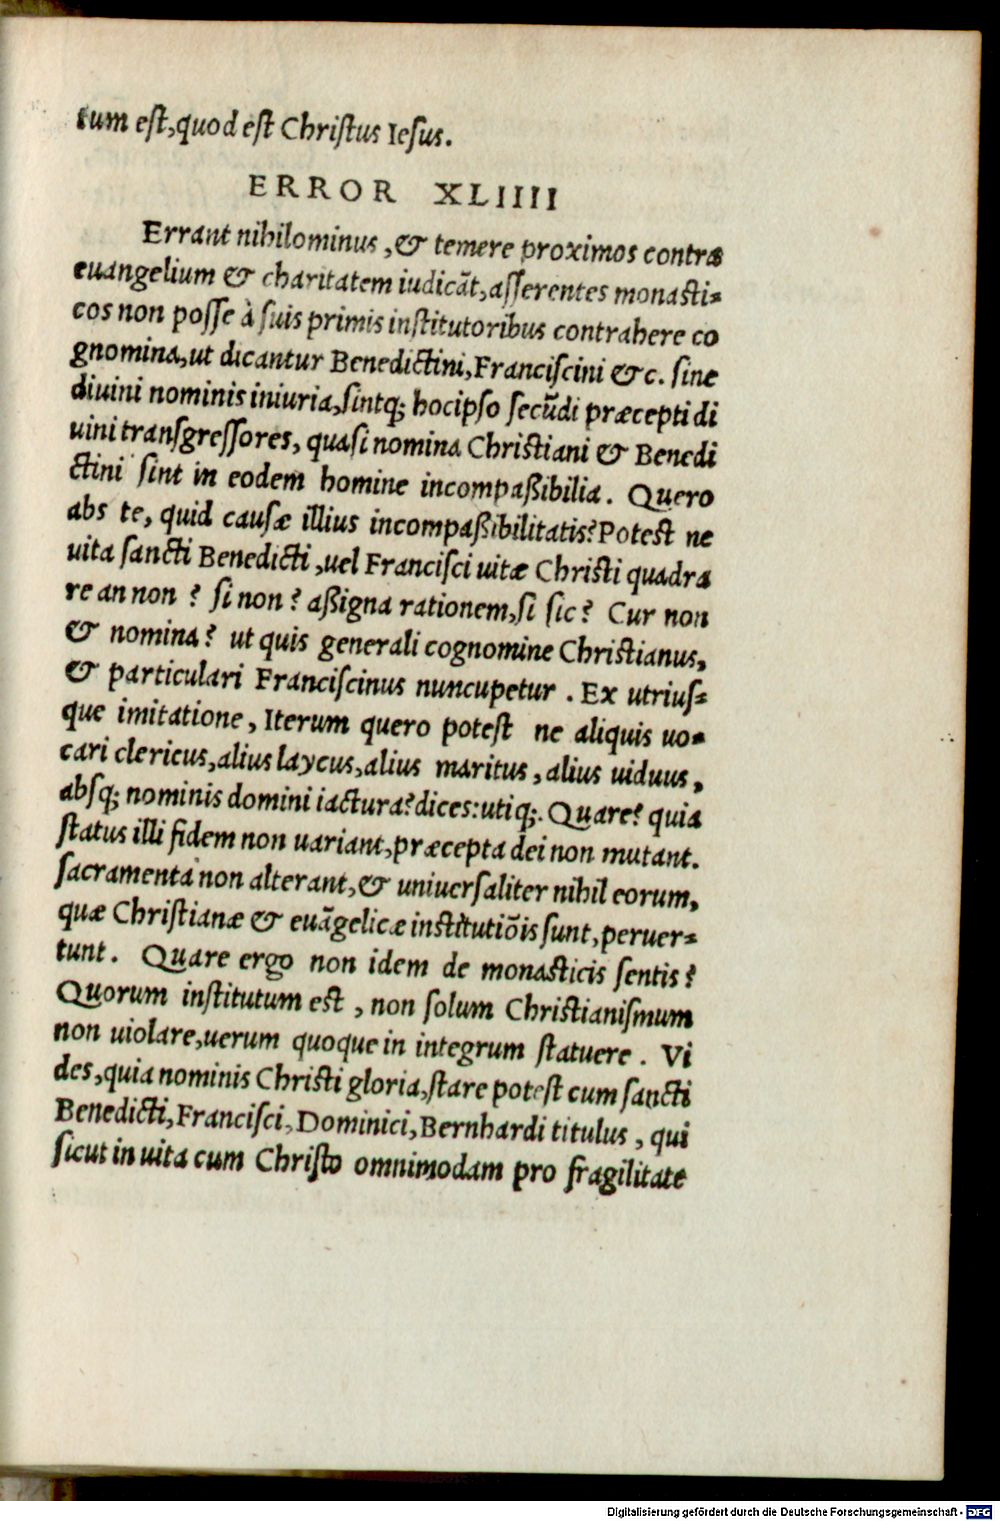 tum est,quod est Christus Iesus.
ERROR XLIIII
Errant nihilominus,& temere proximos contra
euangelium & charitatem iudicãt,asserentes monasti-
cos non posse à suis primis institutoribus contrahere co
gnomina,ut dicantur Benedictini,Franciscini &c. sine
diuini nominis iniuria,sintq; hocipso secũdi præcepti di
uini transgressores, quasi nomina Christiani & Benedi
ctini sint in eodem homine incompaßibilia. Quero
abs te, quid causæ illius incompaßibilitatis?Potest ne
uita sancti Benedicti,uel Francisci uitæ Christi quadra
re an non ? si non ? aßigna rationem,si sic? Cur non
& nomina? ut quis generali cognomine Christianus,
& particulari Franciscinus nuncupetur . Ex utrius-
que imitatione, Iterum quero potest ne aliquis uo-
cari clericus,alius laycus,alius maritus, alius uiduus,
absq; nominis domini iactura?dices:utiq;. Quare? quia
status illi fidem non uariant,præcepta dei non mutant.
sacramenta non alterant,& uniuersaliter nihil eorum,
quæ Christianæ & euãgelicæ institutiõis sunt,peruer-
tunt. Quare ergo non idem de monasticis sentis?
Quorum institutum est, non solum Christianismum
non uiolare,uerum quoque in integrum statuere . Vi
des,quia nominis Christi gloria,stare potest cum sancti
Benedicti,Francisci,Dominici,Bernhardi titulus, qui
sicut in uita cum Christo omnimodam pro fragilitate
Digitalisierung gefördert durch die Deutsche Forschungsgemeinschaft - DFG